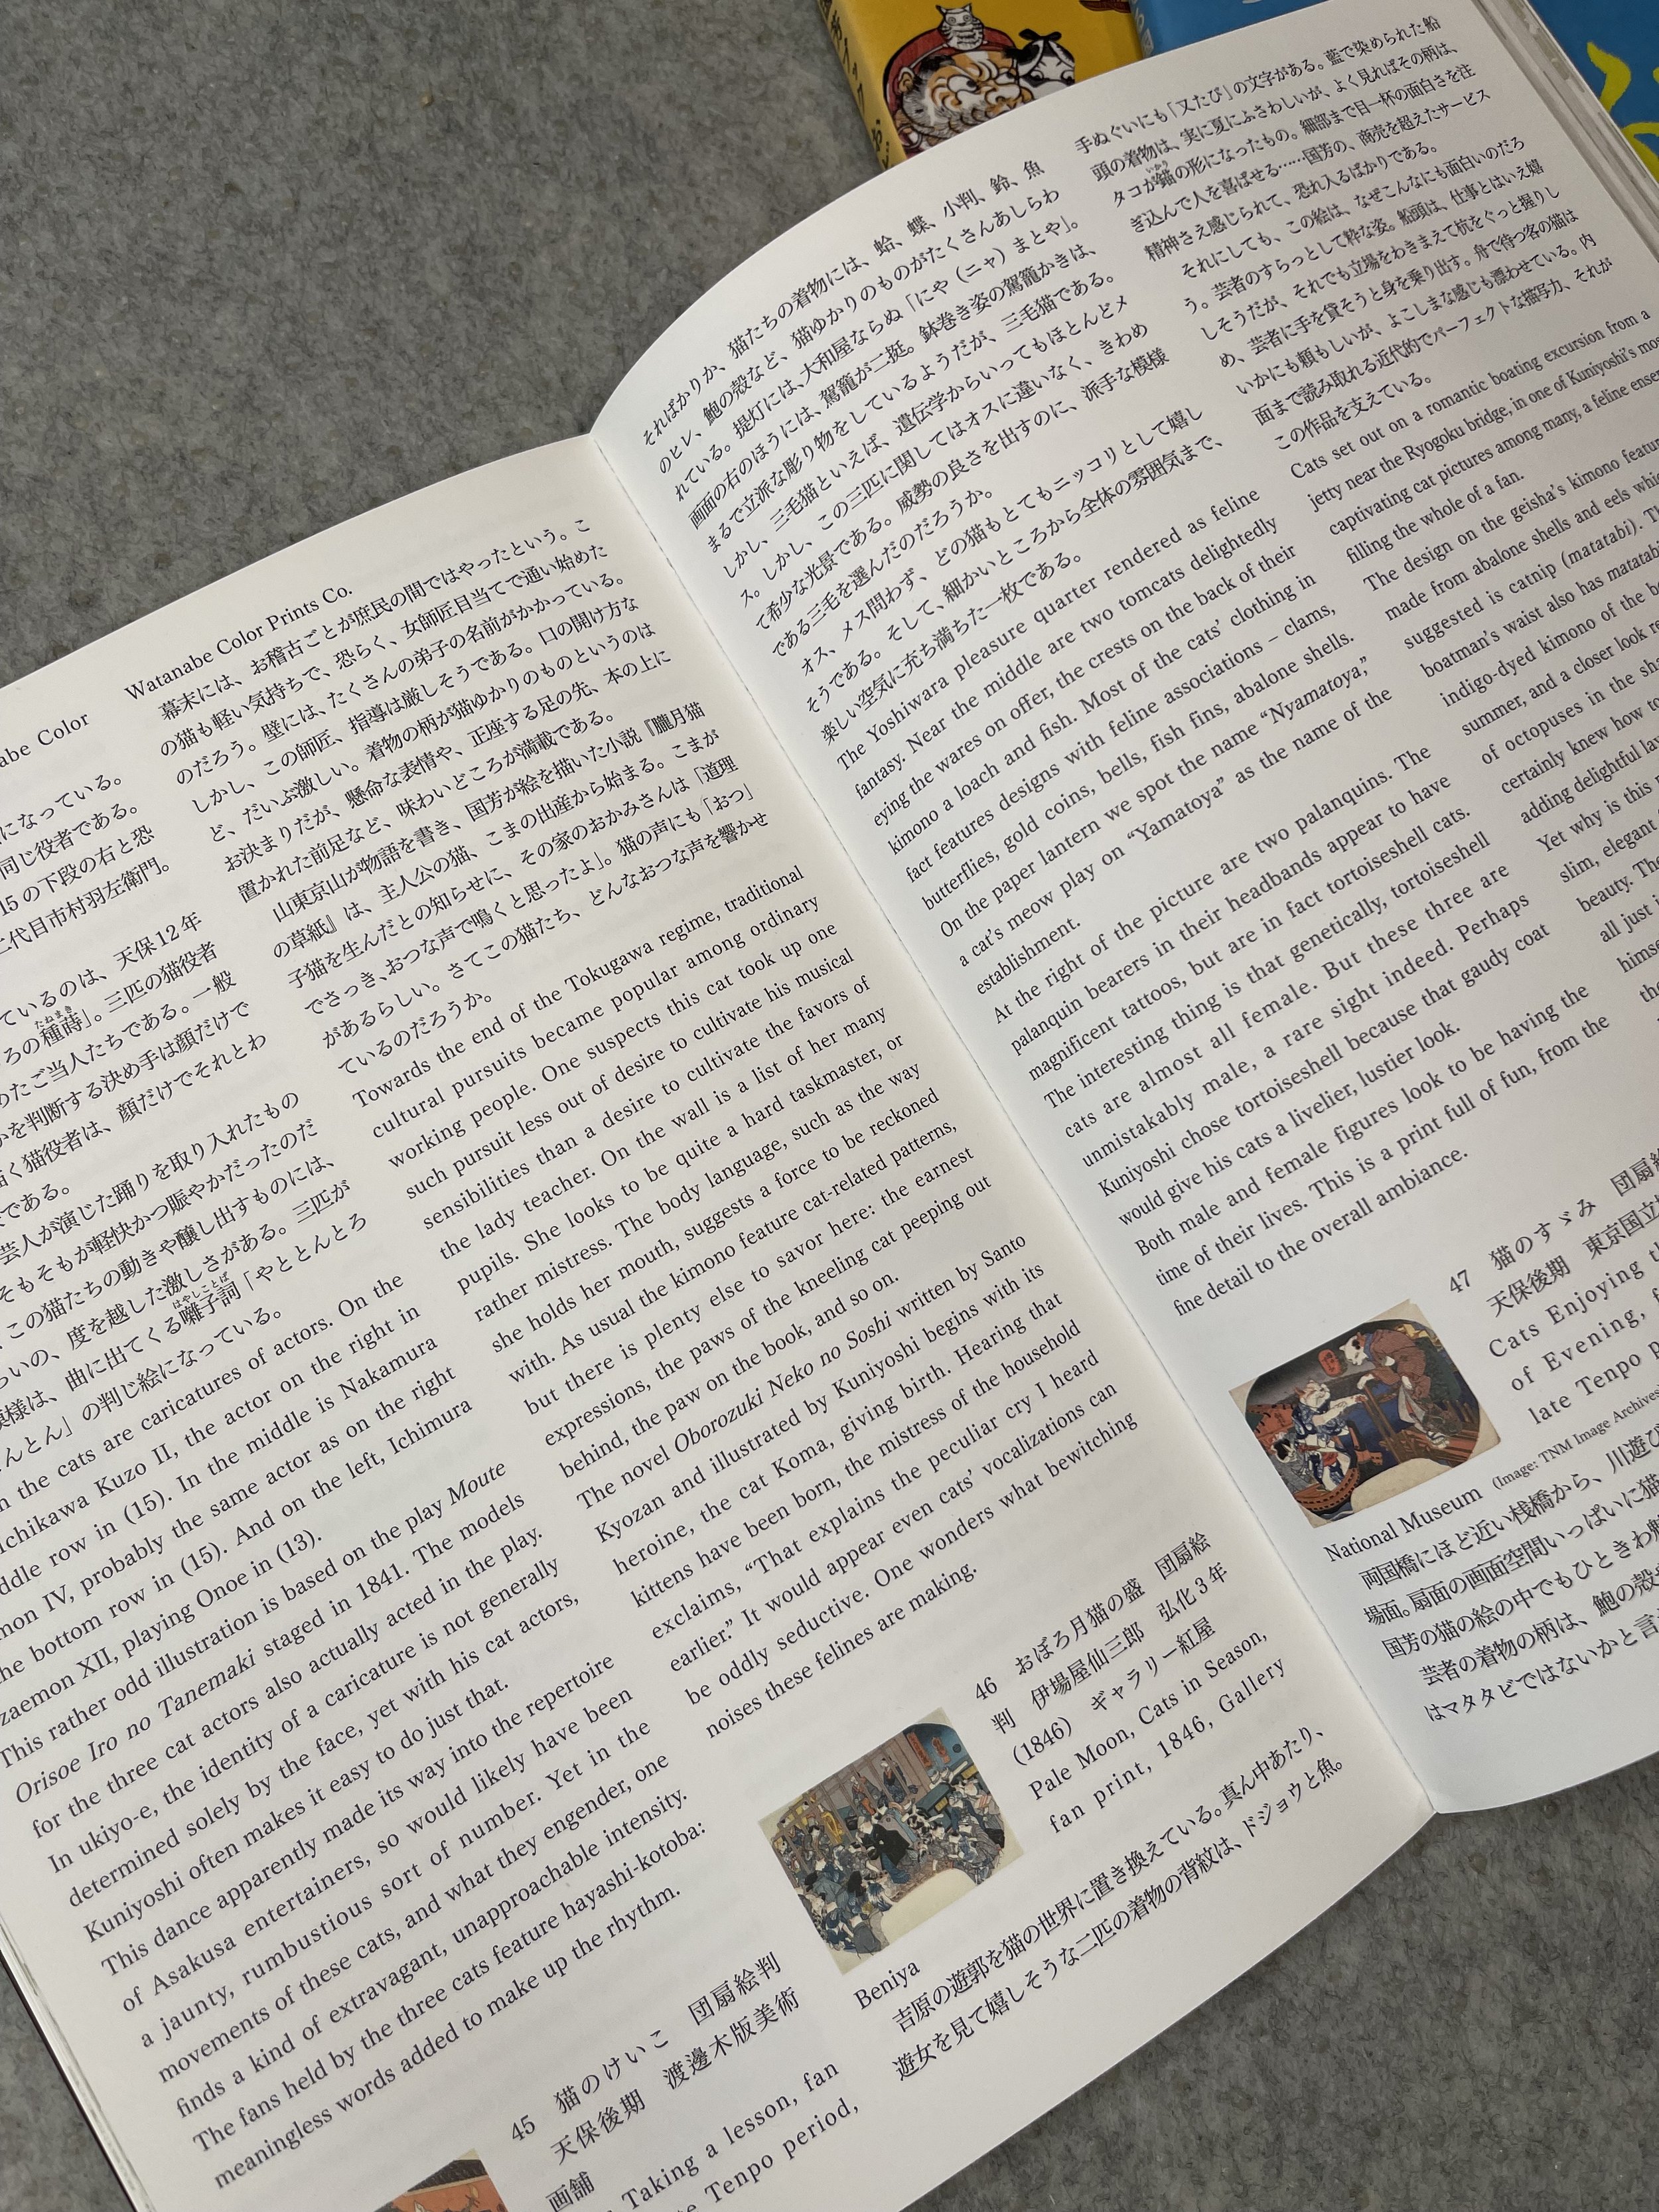 abe Color
になっている。
同じ役者である。
15 の下段の右と恐
二代目市村羽左衛門。
ているのは、天保12年
ろの種蒔」。三匹の猫役者
たねまき
めたご当人たちである。一般
かを判断する決め手は顔だけで
描く猫役者は、顔だけでそれとわ
である。
芸人が演じた踊りを取り入れたもの
そもそもが軽快かつ賑やかだったのだ
、この猫たちの動きや醸し出すものには、
らいの、度を越した激しさがある。三匹が
模様は、曲に出てくる囃子詞「やととんとろ
はやしことば
とんとん」の判じ絵になっている。
n the cats are caricatures of actors. On the
Ichikawa Kuzo II, the actor on the right in
ddle row in (15). In the middle is Nakamura
mon IV, probably the same actor as on the right
he bottom row in (15). And on the left, Ichimura
zaemon XII, playing Onoe in (13).
This rather odd illustration is based on the play Moute
Orisoe Iro no Tanemaki staged in 1841. The models
for the three cat actors also actually acted in the play.
In ukiyo-e, the identity of a caricature is not generally
determined solely by the face, yet with his cat actors,
Kuniyoshi often makes it easy to do just that.
This dance apparently made its way into the repertoire
of Asakusa entertainers, so would likely have been
a jaunty, rumbustious sort of number. Yet in the
movements of these cats, and what they engender, one
finds a kind of extravagant, unapproachable intensity.
The fans held by the three cats feature hayashi-kotoba:
meaningless words added to make up the rhythm.
45 猫のけいこ 団扇絵判
天保後期 渡邊木版美術
画舗
Taking a lesson, fan
e Tenpo period,
Watanabe Color Prints Co.
幕末には、お稽古ごとが庶民の間ではやったという。こ
の猫も軽い気持ちで、恐らく、女師匠目当てで通い始めた
のだろう。壁には、たくさんの弟子の名前がかかっている。
しかし、この師匠、指導は厳しそうである。口の開け方な
ど、だいぶ激しい。着物の柄が猫ゆかりのものというのは
お決まりだが、懸命な表情や、正座する足の先、本の上に
置かれた前足など、味わいどころが満載である。
山東京山が物語を書き、国芳が絵を描いた小説『朧月猫
の草紙』は、主人公の猫、こまの出産から始まる。こまが
子猫を生んだとの知らせに、その家のおかみさんは「道理
でさっき、おつな声で鳴くと思ったよ」。猫の声にも「おつ」
があるらしい。さてこの猫たち、どんなおつな声を響かせ
ているのだろうか。
Towards the end of the Tokugawa regime, traditional
cultural pursuits became popular among ordinary
working people. One suspects this cat took up one
such pursuit less out of desire to cultivate his musical
sensibilities than a desire to cultivate the favors of
the lady teacher. On the wall is a list of her many
pupils. She looks to be quite a hard taskmaster, or
rather mistress. The body language, such as the way
she holds her mouth, suggests a force to be reckoned
with. As usual the kimono feature cat-related patterns,
but there is plenty else to savor here: the earnest
expressions, the paws of the kneeling cat peeping out
behind, the paw on the book, and so on.
The novel Oborozuki Neko no Soshi written by Santo
Kyozan and illustrated by Kuniyoshi begins with its
heroine, the cat Koma, giving birth. Hearing that
kittens have been born, the mistress of the household
exclaims, “That explains the peculiar cry I heard
earlier.” It would appear even cats’ vocalizations can
be oddly seductive. One wonders what bewitching
noises these felines are making.
46 おぼろ月猫の盛 団扇絵
判 伊場屋仙三郎 弘化3年
(1846) ギャラリー紅屋
Pale Moon, Cats in Season,
fan print, 1846, Gallery
Beniya
吉原の遊郭を猫の世界に置き換えている。真ん中あたり、
遊女を見て嬉しそうな二匹の着物の背紋は、ドジョウと魚。
そればかりか、猫たちの着物には、蛤、蝶、小判、鈴、魚
のヒレ、鮑の殻など、猫ゆかりのものがたくさんあしらわ
れている。提灯には、大和屋ならぬ「にや（ニャ）まとや」。
画面の右のほうには、駕籠が二挺。鉢巻き姿の駕籠かきは、
まるで立派な彫り物をしているようだが、三毛猫である。
しかし、三毛猫といえば、遺伝学からいってもほとんどメ
ス。しかし、この三匹に関してはオスに違いなく、きわめ
て希少な光景である。威勢の良さを出すのに、派手な模様
である三毛を選んだのだろうか。
オス、メス問わず、どの猫もとてもニッコリとして嬉し
そうである。そして、細かいところから全体の雰囲気まで、
楽しい空気に充ち満ちた一枚である。
The Yoshiwara pleasure quarter rendered as feline
fantasy. Near the middle are two tomcats delightedly
eying the wares on offer, the crests on the back of their
kimono a loach and fish. Most of the cats’ clothing in
fact features designs with feline associations – clams,
butterflies, gold coins, bells, fish fins, abalone shells.
On the paper lantern we spot the name “Nyamatoya,”
a cat’s meow play on “Yamatoya” as the name of the
establishment.
At the right of the picture are two palanquins. The
palanquin bearers in their headbands appear to have
magnificent tattoos, but are in fact tortoiseshell cats.
The interesting thing is that genetically, tortoiseshell
cats are almost all female. But these three are
unmistakably male, a rare sight indeed. Perhaps
Kuniyoshi chose tortoiseshell because that gaudy coat
would give his cats a livelier, lustier look.
Both male and female figures look to be having the
time of their lives. This is a print full of fun, from the
fine detail to the overall ambiance.
47 猫のすゞみ 団扇絵
天保後期 東京国立
Cats Enjoying th
of Evening, f
late Tenpo p
National Museum (Image: TNM Image Archives
両国橋にほど近い桟橋から、川遊び
場面。扇面の画面空間いっぱいに猫
国芳の猫の絵の中でもひときわ魅
芸者の着物の柄は、鮑の殻
はマタタビではないかと言
手ぬぐいにも「又たび」の文字がある。藍で染められた船
頭の着物は、実に夏にふさわしいが、よく見ればその柄は、
タコが錨の形になったもの。細部まで目一杯の面白さを注
いかり
ぎ込んで人を喜ばせる……国芳の、商売を超えたサービス
精神さえ感じられて、恐れ入るばかりである。
それにしても、この絵は、なぜこんなにも面白いのだろ
う。芸者のすらっとして粋な姿。船頭は、仕事とはいえ嬉
しそうだが、それでも立場をわきまえて杭をぐっと握りし
め、芸者に手を貸そうと身を乗り出す。舟で待つ客の猫は
いかにも頼もしいが、よこしまな感じも漂わせている。内
面まで読み取れる近代的でパーフェクトな描写力、それが
この作品を支えている。
Cats set out on a romantic boating excursion from a
jetty near the Ryogoku bridge, in one of Kuniyoshi’s mos
captivating cat pictures among many, a feline ensem
filling the whole of a fan.
The design on the geisha’s kimono featur
made from abalone shells and eels whic
suggested is catnip (matatabi). Th
boatman’s waist also has matatab
indigo-dyed kimono of the bo
summer, and a closer look re
of octopuses in the sha
certainly knew how to
adding delightful lay
Yet why is this
slim, elegant
beauty. The
all just i
himse
the